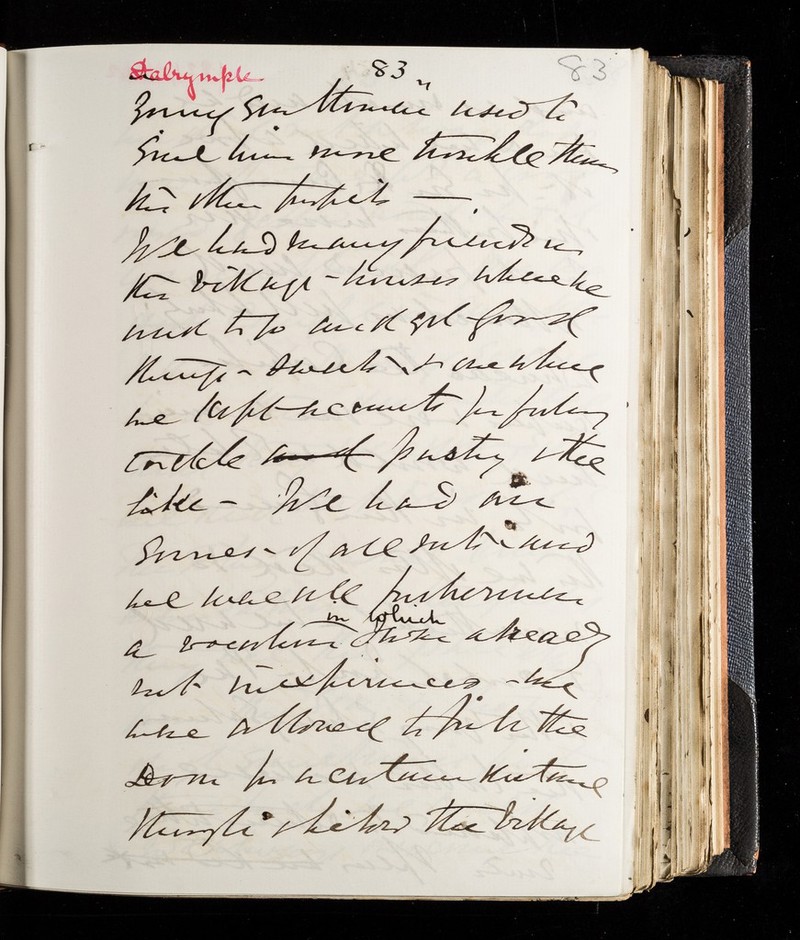 Dalrymple 83 83
Young Gentlemen used to
give him more trouble than
his other pupils —
We had many friends in
the village - houses where we
used to go and get good
things - sweets & one where
we kept accounts for
and pastry & the
like - We had our
of all sorts and
we were all fishermen
a vocation in which I was already
not inexperienced - we
were allowed to fish the
Doon for a certain distance
through & below the village